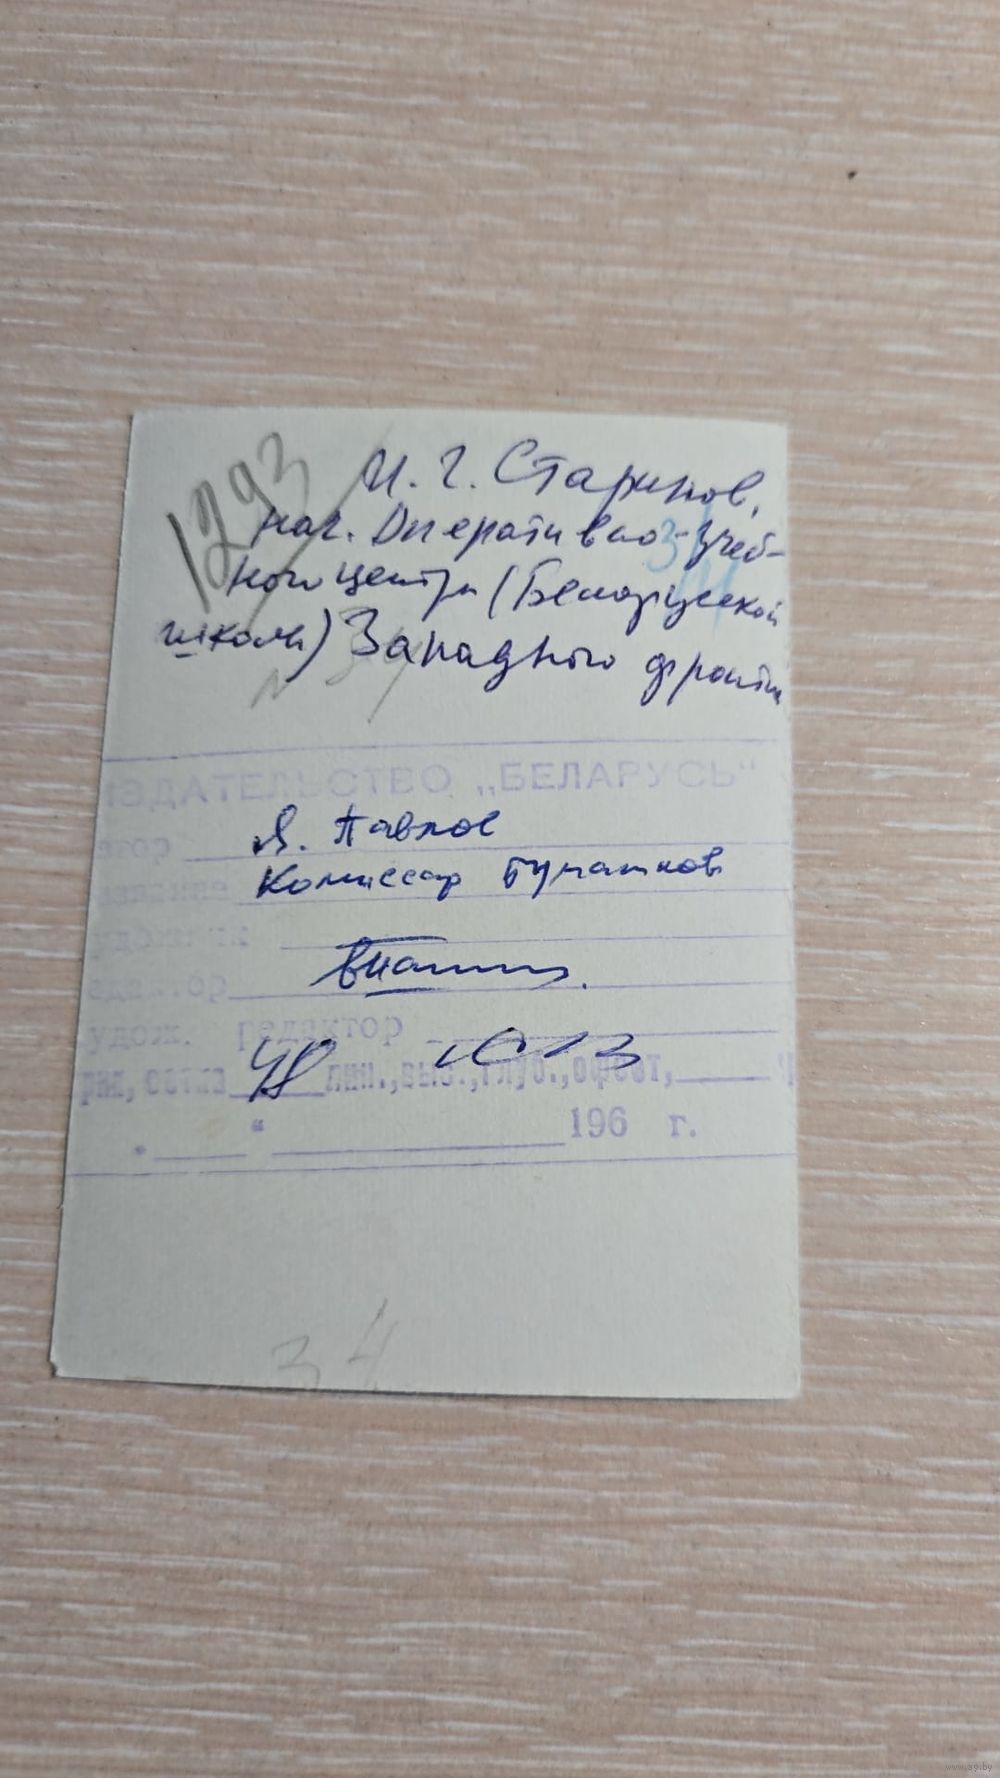 1293
И. Г. Старинов,
нач. Оперативно-учеб-
ного центра (Белорусской
школы) Западного фронта
34
ИЗДАТЕЛЬСТВО „БЕЛАРУСЬ“
втор Я. Павлов
азвание Комиссар Бумажков
едактор
удож. редактор
рис, сетка 48 лин., выс., глуб., офсет,
" " 196 г.
34
www.ay.by